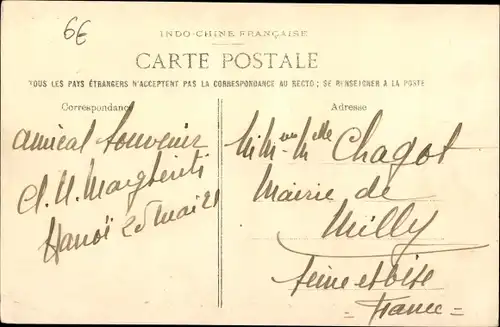 6€
INDO-CHINE FRANÇAISE
CARTE POSTALE
TOUS LES PAYS ÉTRANGERS N'ACCEPTENT PAS LA CORRESPONDANCE AU RECTO; SE RENSEIGNER A LA POSTE
Correspondance
Adresse
Amical Souvenir
Hanoï 25 Mai 21
Chagot
Mairie de
Milly
Seine et Oise
= France =